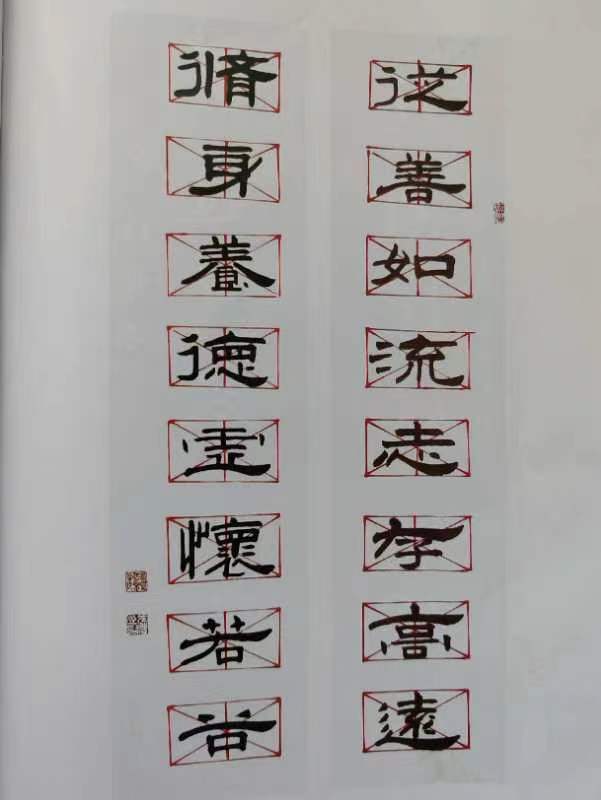 從善如流志存高遠
脩身養德虛懷若谷